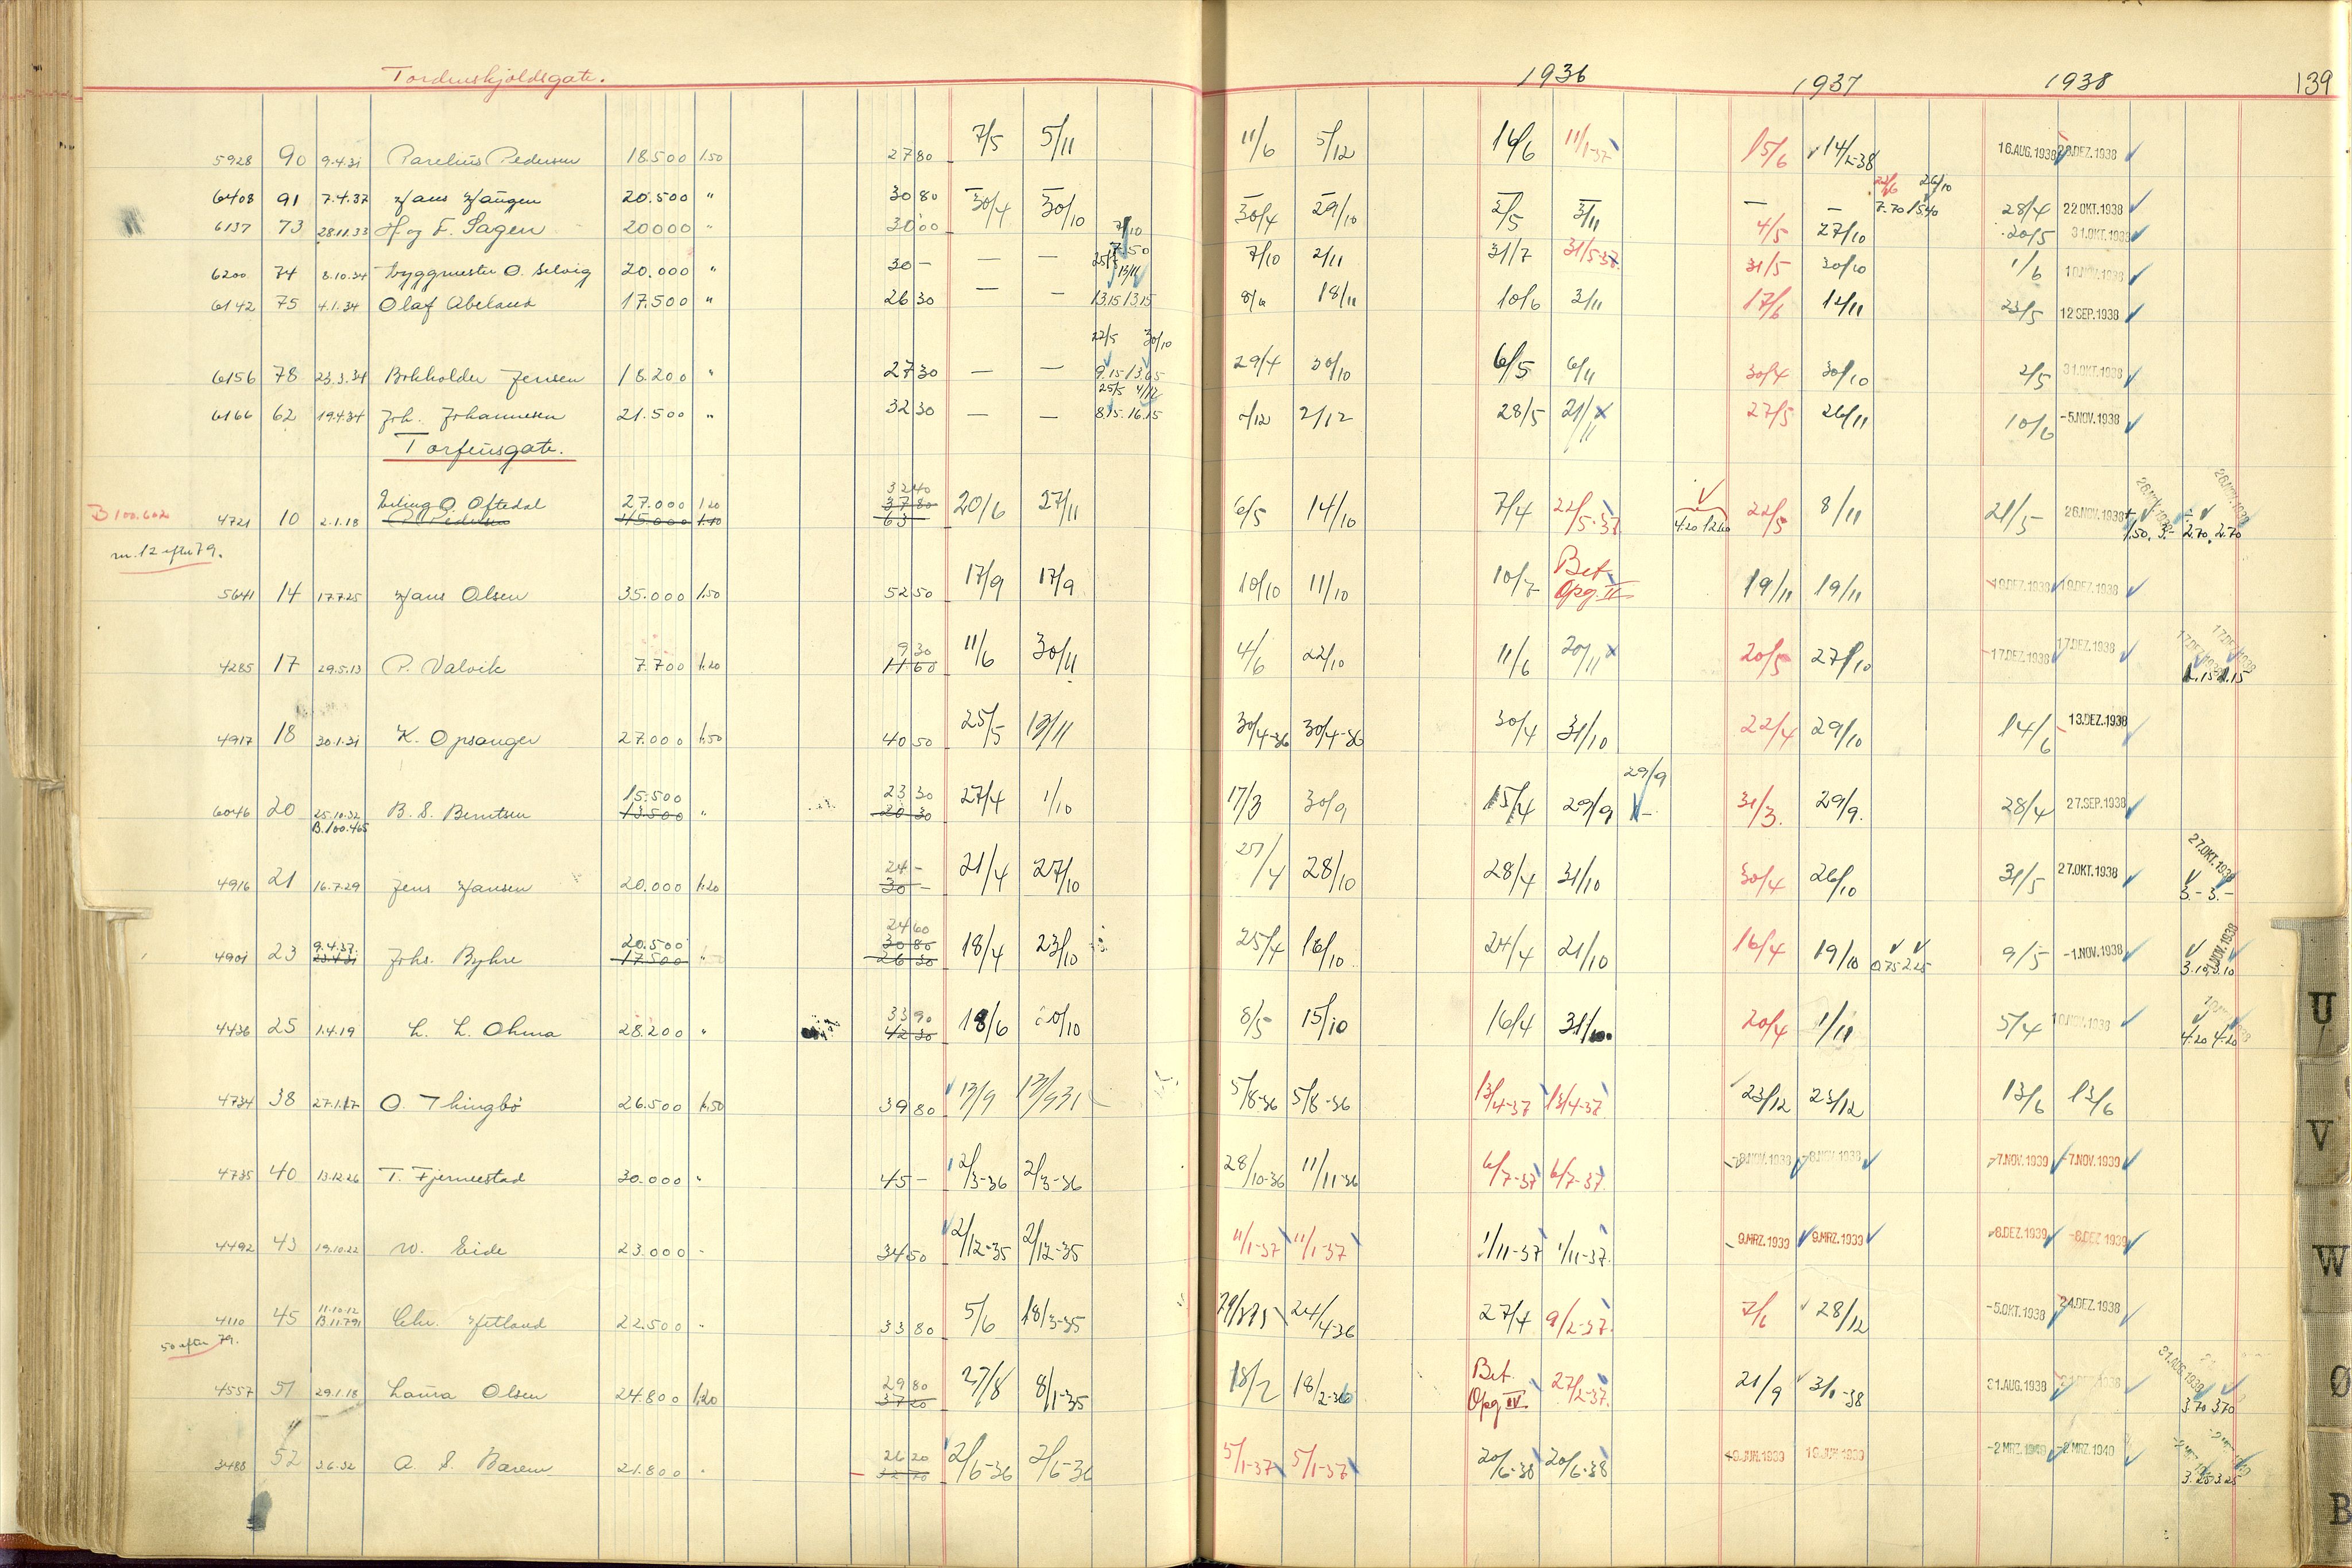 Tordenskjoldsgate. 1936 1937 1938 139
5928 90 9.4.31 Parelius Pedersen 18.500 1.50 27 80 7/5 5/11 11/6 5/12 16/6 11/1-37 15/6 14/2-38 16.AUG.1938 DEZ.1938
22/6 26/10
6408 91 7.4.37 Hans Haugen 20.500 " 30 80 — — — — — — — — 7.70 15.40 28/4 22 OKT.1938
6137 73 28.11.33 H. og F. Sagen 20000 " 30 00 30/4 30/10 30/4 29/10 2/5 3/11 4/5 27/10 20/5 31.OKT.1938
7/10
7.50
6200 74 8.10.34 Byggmester O. Selvig 20.000 " 30 — — — 7/10 2/11 31/7 31/5-37 31/5 30/10 1/6 10.NOV.1938
25/7 13/11
6142 75 4.1.34 Olaf Abeland 17.500 " 26 30 — — 13.15 13.15 8/6 18/11 10/6 3/11 17/6 12/11 23/5 12 SEP.1938
22/5 30/10
6156 78 23.3.34 Bokholder Jensen 18.200 " 27 30 — — 9.15 13.65 29/4 30/10 6/5 6/11 30/4 30/10 2/5 31.OKT.1938
25/5 4/12
6166 62 19.4.34 Joh. Johannesen 21.500 " 32 30 — — 8.15 16.15 2/12 28/5 21/11 27/5 26/11 10/6 -5.NOV.1938
Torfeusgate.
32 40
B 100.602 Erling O. Oftedal 27.000 1.20 37 80
4721 10 2.1.18 Pedersen 45.000 63 20/6 27/11 6/5 14/10 7/4 22/5-37 4.20 12.60 22/5 8/11 21/5 26.NOV.1938 1.50 3.- 2.70 2.70
nr. 12 efter 79.
5641 14 17.7.25 Hans Olsen 35.000 1.50 52 50 17/9 17/9 10/10 11/10 Bet. Opg. II 19/11 19/11 19.DEZ.1938 19.DEZ.1938
9 30
4285 17 29.5.13 P. Valvik 7.700 1.20 11 60 11/6 30/11 4/6 22/10 11/6 20/11 20/5 27/10 17.DEZ.1938 17.DEZ.1938 1.15 1.15
4917 18 30.1.31 K. Opsanger 27.000 1.50 40 50 25/5 19/11 30/4-36 30/4-36 30/4 31/10 22/4 29/10 14/6 13.DEZ.1938
15.500 23 30 29/9
6046 20 25.10.32 B. S. Berntsen 13.500 " 20 30 27/4 1/10 17/3 30/9 15/4 29/9 31/3. 29/9. 28/4 27.SEP.1938
B.100.465
24 — 27.OKT.1938
4916 21 16.7.29 Jens Hansen 20.000 1.20 30 — 21/4 27/10 27/4 28/10 28/4 31/10 30/4 26/10 31/5 27.OKT.1938 3.- 3.-
24 60
9.4.37. 20.500 30 80
4901 23 23.4.31 Johs. Byhre 17.500 " 26 30 18/4 23/10 25/4 16/10 24/4 21/10 16/4 19/10 0.75 2.25 9/5 -1.NOV.1938 3.10 3.10
33 90
4436 25 1.4.19 L. L. Ohma 28.200 " 42 30 18/6 8/5 15/10 16/4 31/10 20/4 1/11 5/4 10.NOV.1938 4.20 4.20
4734 38 27.1.17 O. Thingbø 26.500 1.50 39 80 13/9 5/8-36 5/8-36 13/4-37 13/4-37 23/12 23/12 13/6 13/6
4735 40 13.12.26 T. Fjermestad 30.000 " 45 — 12/3-36 2/3-36 28/10-36 11/11-36 6/7-37 6/7-37 -8.NOV.1938 -8.NOV.1938 -7.NOV.1939 -7.NOV.1939
4492 43 19.10.22 W. Eide 23.000 - 34 50 2/12-35 2/12-35 11/1-37 11/1-37 1/11-37 1/11-37 9.MRZ.1939 9.MRZ.1939 -8.DEZ.1939 -8.DEZ.1939
11.10.12
4110 45 B.11.791 Chr. Hetland 22.500 " 33 80 5/6 18/3-35 24/4-36 27/4 9/2-37 7/6 28/12 -5.OKT.1938 24.DEZ.1938
50 efter 79.
29 80 31.AUG.1938
4557 51 29.1.18 Laura Olsen 24.800 1.20 37 20 27/8 8/1-35 18/2 18/2-36 Bet. Opg. IV 27/2-37 21/9 3/1-38 31.AUG.1938 3.70 3.70
26 20
3488 52 3.6.32 A. S. Barem 21.800 " 2/6-36 2/6-36 5/1-37 5/1-37 20/6-38 20/6-38 19.JUN.1939 19.JUN.1939 -2 MRZ.1940 -2 MRZ.1940 3.25 3.25
U
V
W
Ø
B